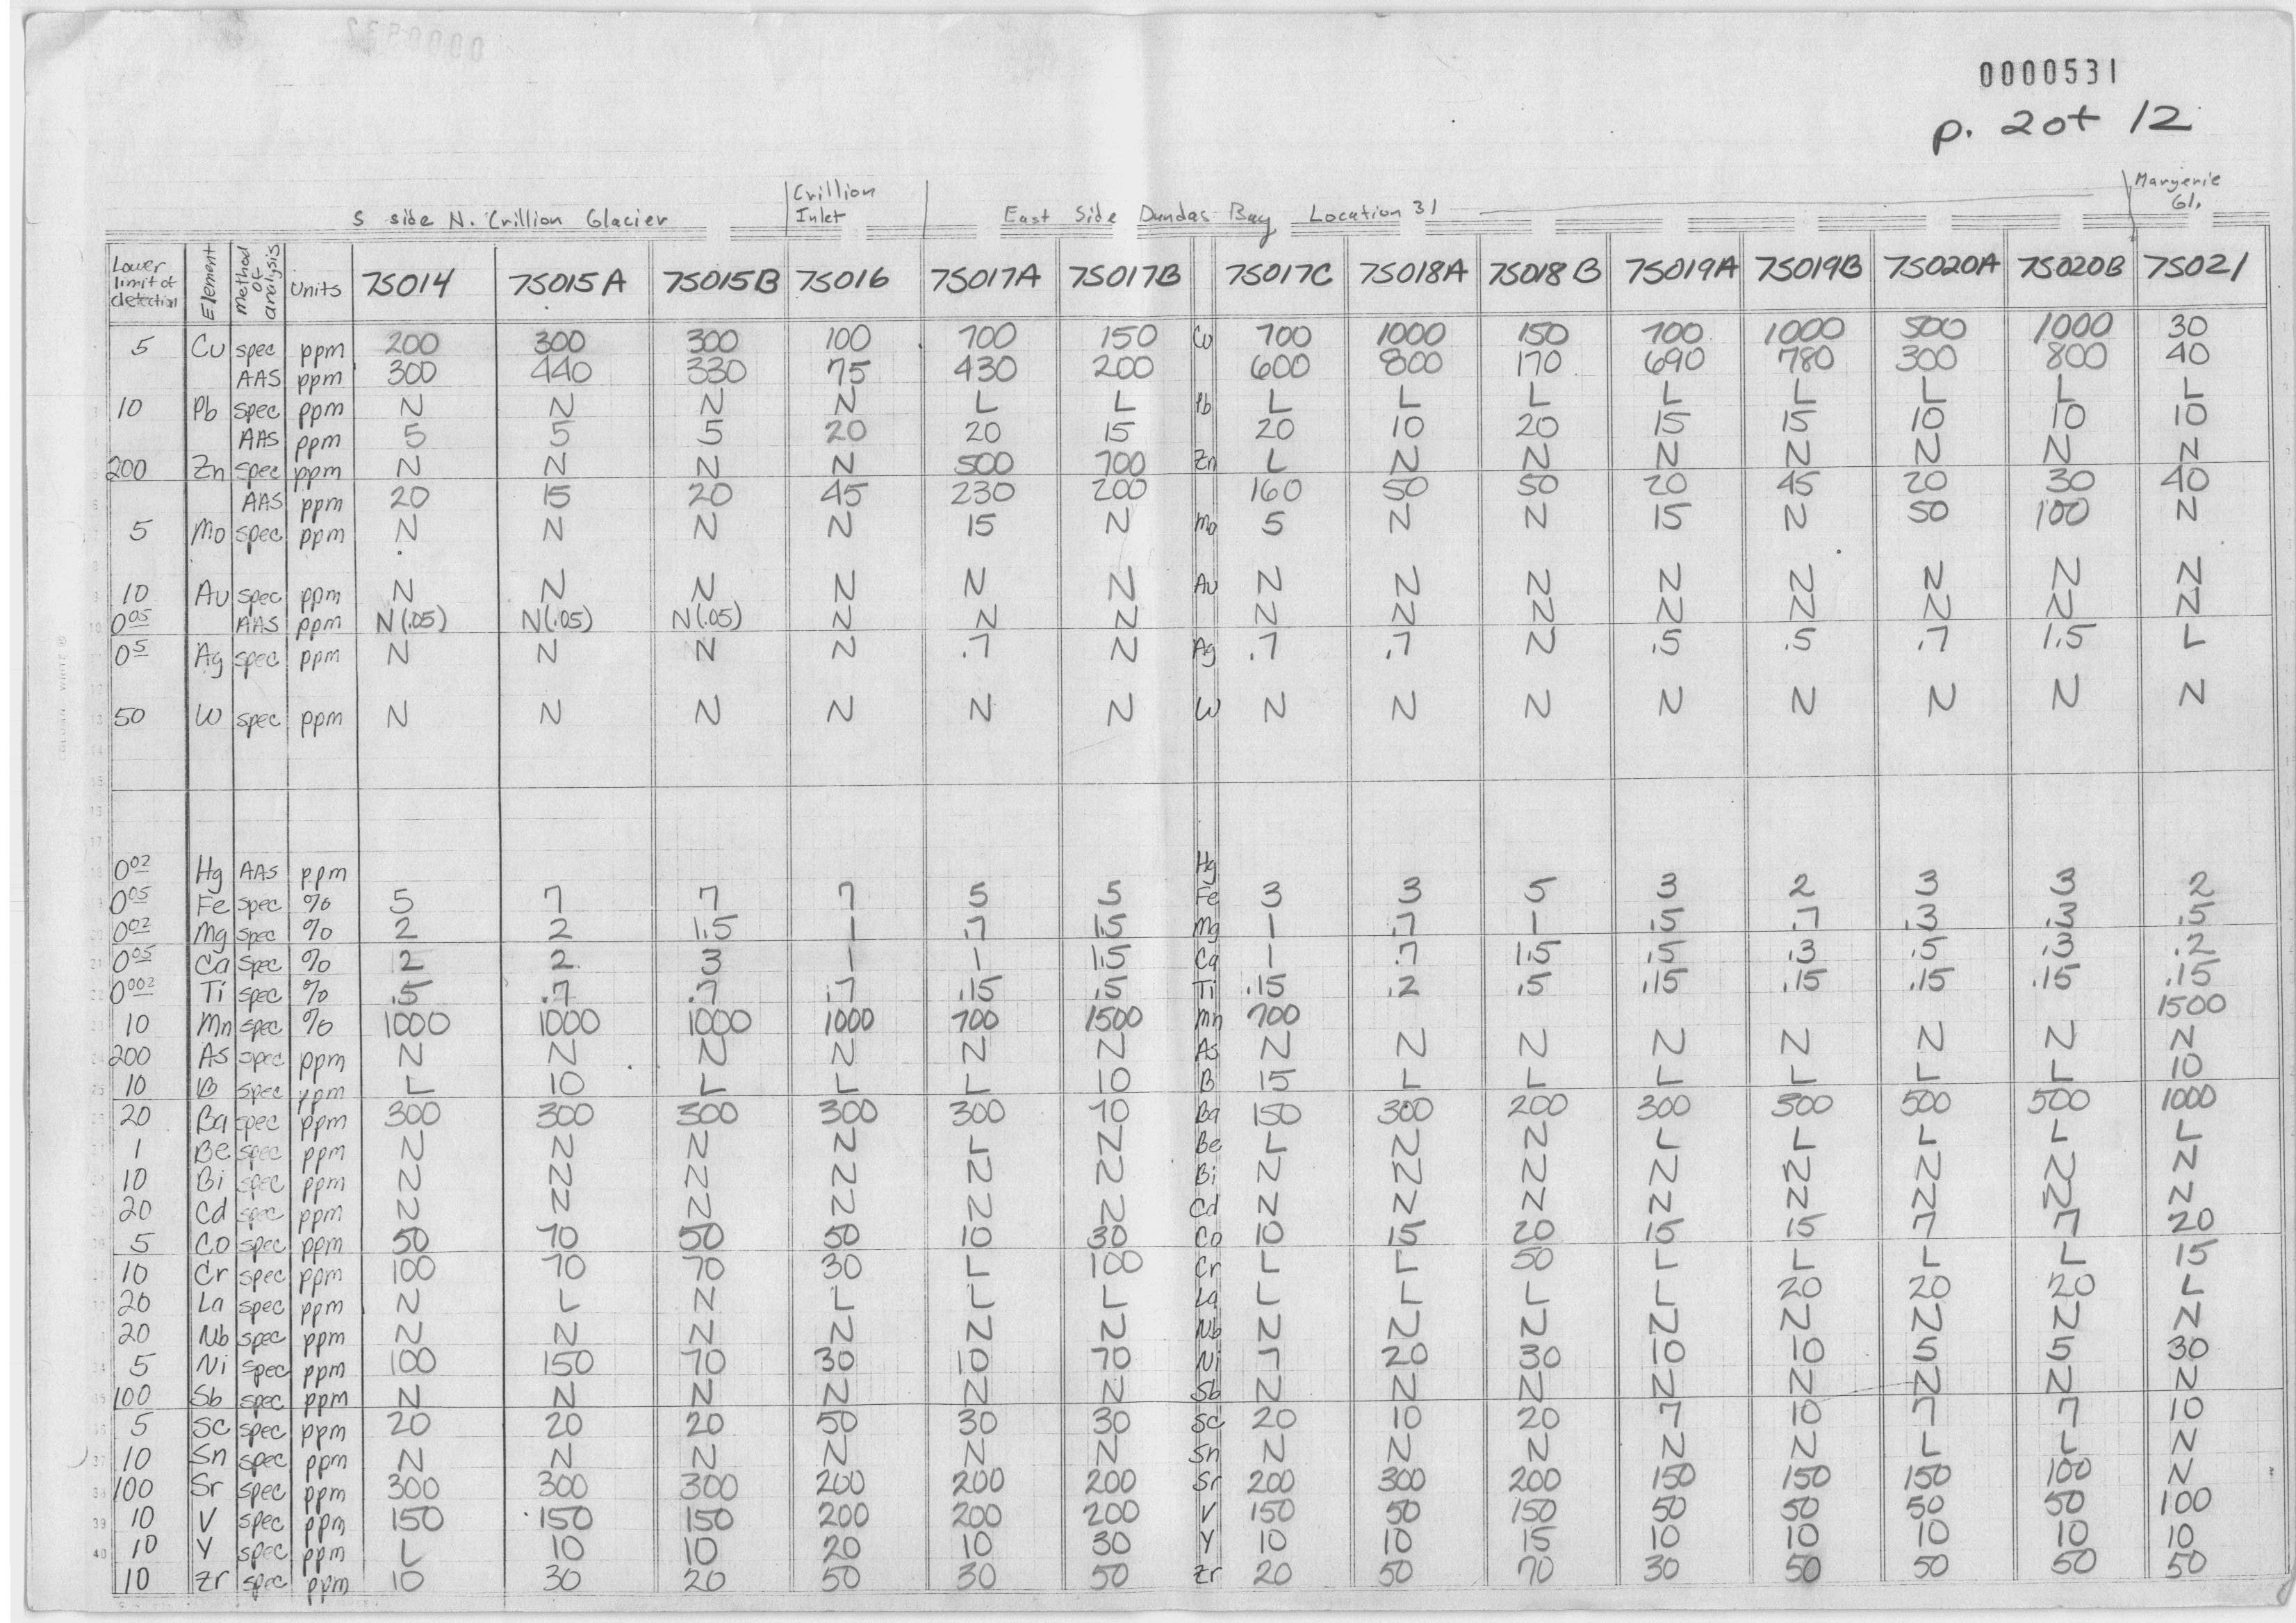 0000531
p. 2 of 12
S side N. Crillion Glacier Crillion Inlet East Side Dundas Bay Location 31 Margerie Gl.
Lower limit of detection Element Method of analysis Units 75014 75015A 75015B 75016 75017A 75017B 75017C 75018A 75018B 75019A 75019B 75020A 75020B 75021
5 Cu spec ppm 200 300 300 100 700 150 Cu 700 1000 150 700 1000 500 1000 30
AAS ppm 300 440 330 75 430 200 600 800 170 690 780 300 800 40
10 Pb spec ppm N N N N L L Pb L L L L L L L L
AAS ppm 5 5 5 20 20 15 20 10 20 15 15 10 10 10
200 Zn spec ppm N N N N 500 700 Zn L N N N N N N N
AAS ppm 20 15 20 45 230 200 160 50 50 20 45 20 30 40
5 Mo spec ppm N N N N 15 N Mo 5 N N 15 N 50 100 N
10 Au spec ppm N N N N N N Au N N N N N N N N
0.05 AAS ppm N(.05) N(.05) N(.05) N N N N N N N N N N N
0.5 Ag spec ppm N N N N .7 N Ag .7 .7 N .5 .5 .7 1.5 L
50 W spec ppm N N N N N N W N N N N N N N N
0.02 Hg AAS ppm Hg
0.05 Fe spec % 5 7 7 7 5 5 Fe 3 3 5 3 2 3 3 2
0.02 Mg spec % 2 2 1.5 1 .7 1.5 Mg 1 .7 1 .5 .7 .3 .3 .5
0.05 Ca spec % 2 2 3 1 1 1.5 Ca 1 .7 1.5 .5 .3 .5 .3 .2
0.002 Ti spec % .5 .7 .7 .7 .15 .5 Ti .15 .2 .5 .15 .15 .15 .15 .15
10 Mn spec % 1000 1000 1000 1000 700 1500 Mn 700 1500
200 As spec ppm N N N N N N As N N N N N N N N
10 B spec ppm L 10 L L L 10 B 15 L L L L L L 10
20 Ba spec ppm 300 300 300 300 300 70 Ba 150 300 200 300 300 500 500 1000
1 Be spec ppm N N N N L N Be L N N L L L L L
10 Bi spec ppm N N N N N N Bi N N N N N N N N
20 Cd spec ppm N N N N N N Cd N N N N N N N N
5 Co spec ppm 50 70 50 50 10 30 Co 10 15 20 15 15 7 7 20
10 Cr spec ppm 100 70 70 30 L 100 Cr L L 50 L L L L 15
20 La spec ppm N L N L L L La L L L L 20 20 20 L
20 Nb spec ppm N N N N N N Nb N N N N N N N N
5 Ni spec ppm 100 150 70 30 10 70 Ni 7 20 30 10 10 5 5 30
100 Sb spec ppm N N N N N N Sb N N N N N N N N
5 Sc spec ppm 20 20 20 50 30 30 Sc 20 10 20 7 10 7 7 10
10 Sn spec ppm N N N N N N Sn N N N N N L L N
100 Sr spec ppm 300 300 300 200 200 200 Sr 200 300 200 150 150 150 100 N
10 V spec ppm 150 150 150 200 200 200 V 150 50 150 50 50 50 50 100
10 Y spec ppm L 10 10 20 10 30 Y 10 10 15 10 10 10 10 10
10 Zr spec ppm 10 30 20 50 30 50 Zr 20 50 70 30 50 50 50 50